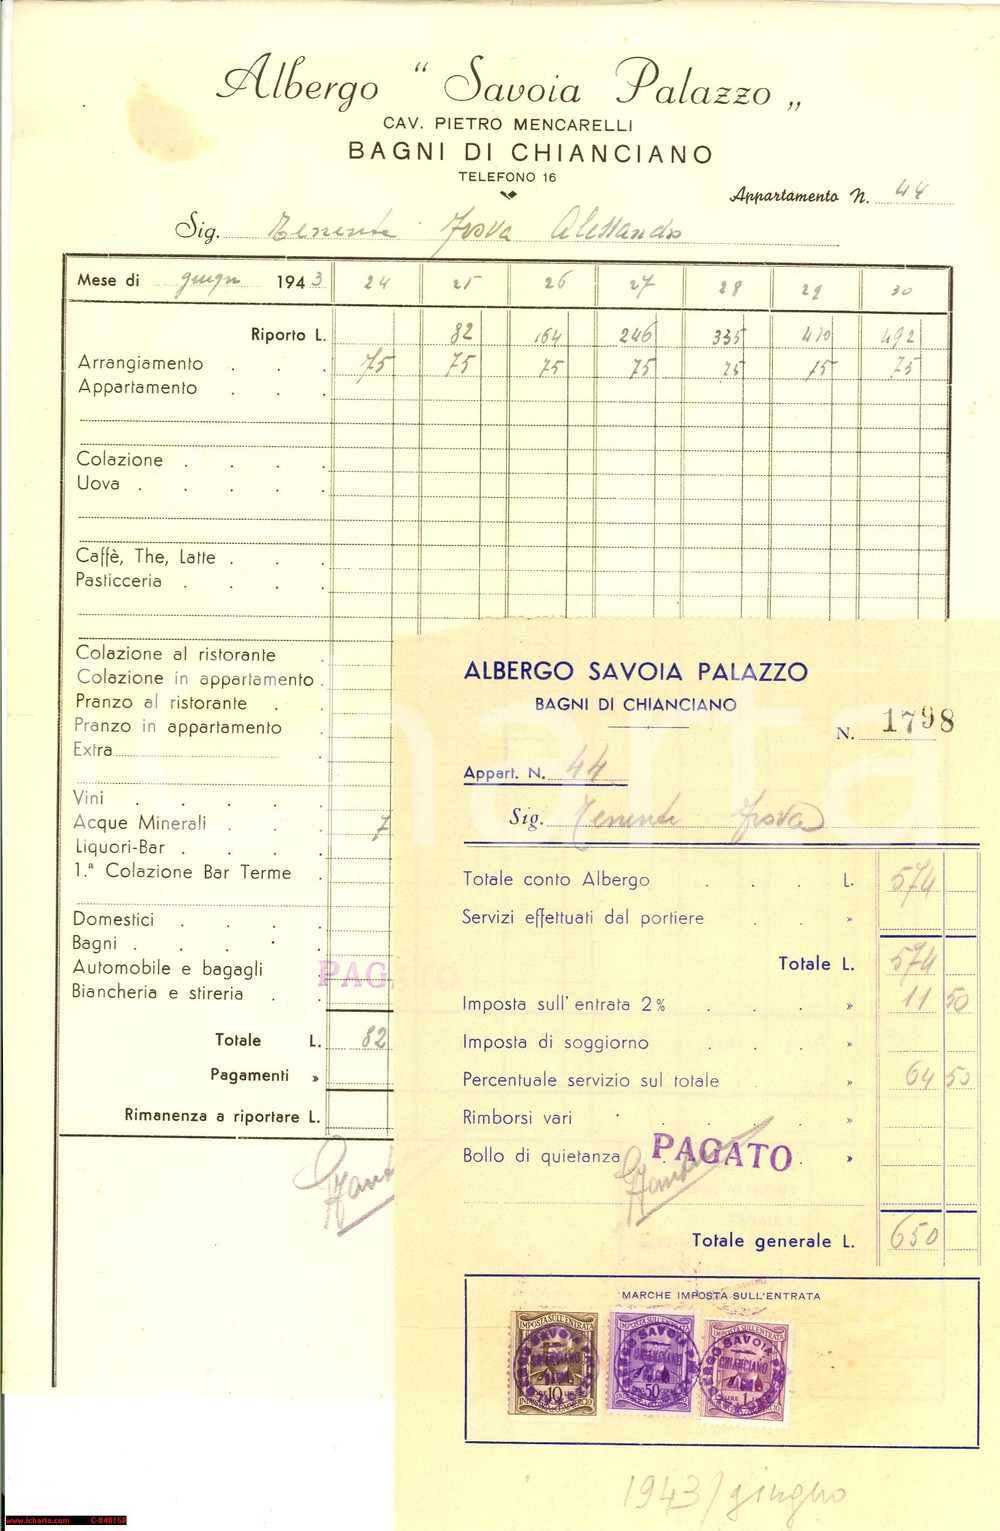 Albergo “ Savoia Palazzo „
CAV. PIETRO MENCARELLI
BAGNI DI CHIANCIANO
TELEFONO 16
Appartamento N. 44
Sig. Tenente Trova Alessandro
Mese di giugno 1943 24 25 26 27 28 29 30
Riporto L. 82 164 246 335 410 492
Arrangiamento . . . 75 75 75 75 75 75 75
Appartamento . . .
Colazione . . . .
Uova . . . . .
Caffè, The, Latte . . .
Pasticceria . . . .
Colazione al ristorante .
Colazione in appartamento .
Pranzo al ristorante . .
Pranzo in appartamento .
Extra .
Vini . . . . .
Acque Minerali . . . 7
Liquori-Bar . . . .
1.ª Colazione Bar Terme .
Domestici . . . .
Bagni . . . . .
Automobile e bagagli .
Biancheria e stireria . .
PAGATO
Totale L. 82
Pagamenti »
Rimanenza a riportare L.
ALBERGO SAVOIA PALAZZO
BAGNI DI CHIANCIANO
N. 1798
Appart. N. 44
Sig. Tenente Trova
Totale conto Albergo . . . L. 574
Servizi effettuati dal portiere . . »
Totale L. 574
Imposta sull' entrata 2% . . . » 11 50
Imposta di soggiorno . . . »
Percentuale servizio sul totale . . » 64 50
Rimborsi vari . . . . »
Bollo di quietanza . . . »
PAGATO
Totale generale L. 650
MARCHE IMPOSTA SULL'ENTRATA
IMPOSTA SULL'ENTRATA IMPOSTA SULL'ENTRATA IMPOSTA SULL'ENTRATA
CHIANCIANO CHIANCIANO CHIANCIANO
10 50 LIRE 1
1943/giugno
www.icharta.com C-040158